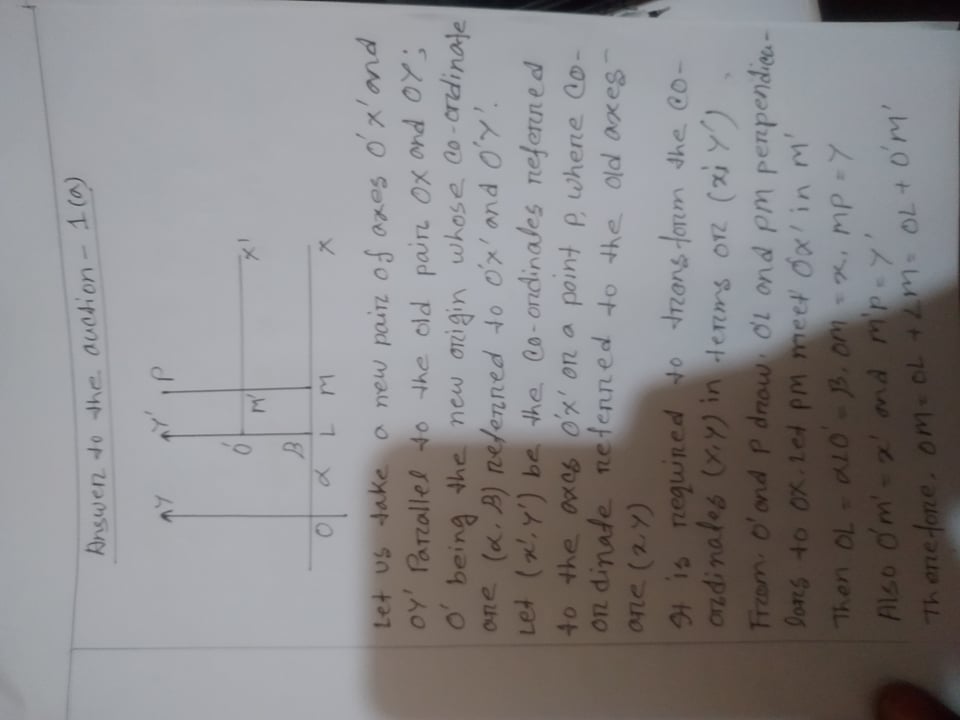 Answer to the auction - 1(a)
Y Y' P
O' M' X'
B
O α L M X
Let us take a new pair of axes O'X' and
OY' Parallel to the old pair OX and OY;
O' being the new origin whose Co-ordinate
are (α, B) referred to O'X' and O'Y'.
Let (x', Y') be the Co-ordinates referred
to the axes O'X' or a point P, where Co-
ordinate referred to the old axes-
are (x, Y)
It is required to transform the Co-
ordinates (X, Y) in terms or (x', Y')
From. O' and P draw. O'L and PM perpendicu-
lars to OX. Let PM meet O'X' in M'
Then OL = αLO' = B, OM = x, MP = Y
Also O'M' = x' and M'P = Y'
Therefore, OM = OL + LM = OL + O'M'